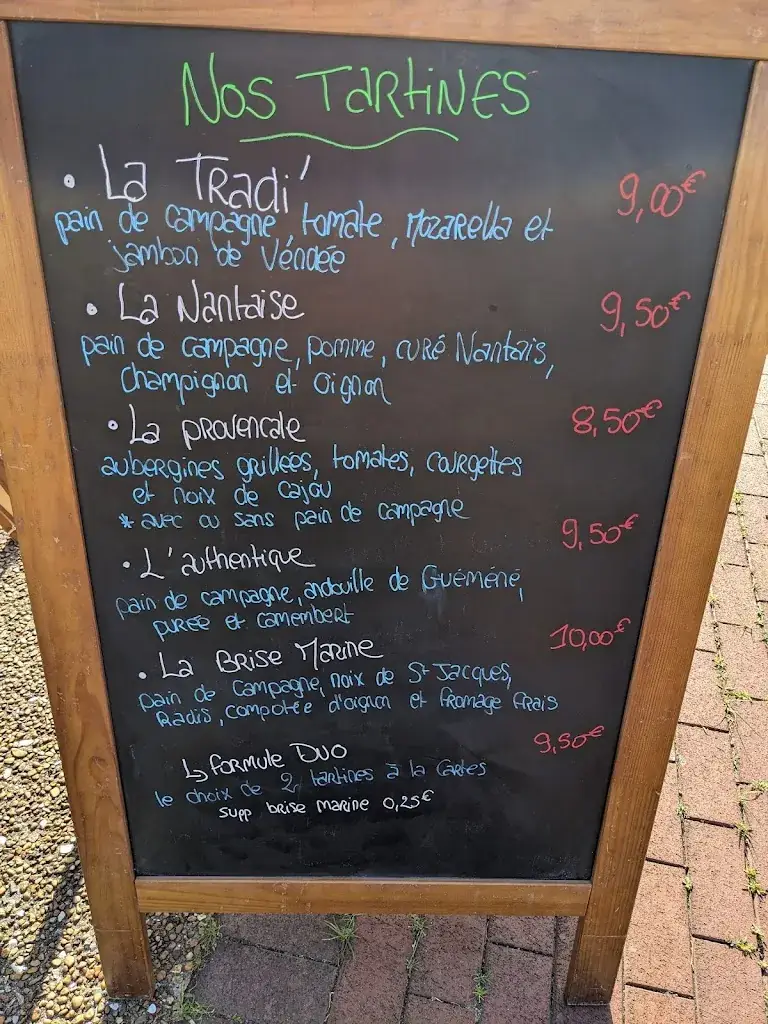 Nos Tartines
• La Tradi' 9,00€
pain de campagne, tomate, Mozarella et
jambon de Vendée
• La Nantaise 9,50€
pain de campagne, pomme, curé Nantais,
champignon et oignon
• La provencale 8,50€
aubergines grillées, tomates, courgettes
et noix de cajou
* avec ou sans pain de campagne
• L'authentique 9,50€
pain de campagne, andouille de Guéméné,
purée et camembert
• La Brise Marine 10,00€
pain de campagne, noix de St Jacques,
Radis, compotée d'oignon et fromage frais
↳ formule Duo 9,50€
le choix de 2 tartines à la Cartes
supp brise marine 0,25€